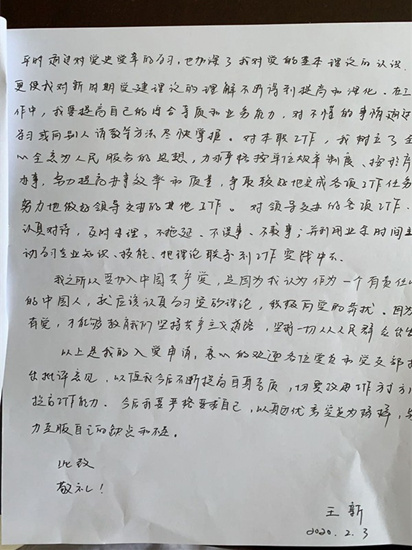 平时通过对党史党章的学习,也加深了我对党的基本理论的认识,
更使我对新时期党建理论的理解不断得到提高和深化。在工
作中,我要提高自己的综合素质和业务能力,对不懂的事情通过
学习或向别人请教等方法尽快掌握。对本职工作,我树立了全
心全意为人民服务的思想,力求严格按单位规章制度、按程序
办事,努力提高办事效率和质量,争取较好地完成各项工作任务
努力地做好领导交办的其他工作。对领导交办的各项工作
认真对待,及时办理,不拖延、不误事、不敷事;并利用业余时间主
动学习专业知识、技能,把理论联系到工作实践中去。
我之所以要加入中国共产党,是因为我认为作为一个有责任
的中国人,就应该认真学习党的理论,积极向党的靠拢。因为
有党,才能够教育我们坚持共产主义道路,坚持一切从人民群众
以上是我的入党申请,衷心的欢迎各位党员和党支部
批评意见,以便我今后不断提高自身素质,切实改进工作方
提高工作能力。今后我要严格要求自己,以真正优秀党员为榜样,
力克服自己的缺点和不足。
此致
敬礼!
王新
2020.2.3